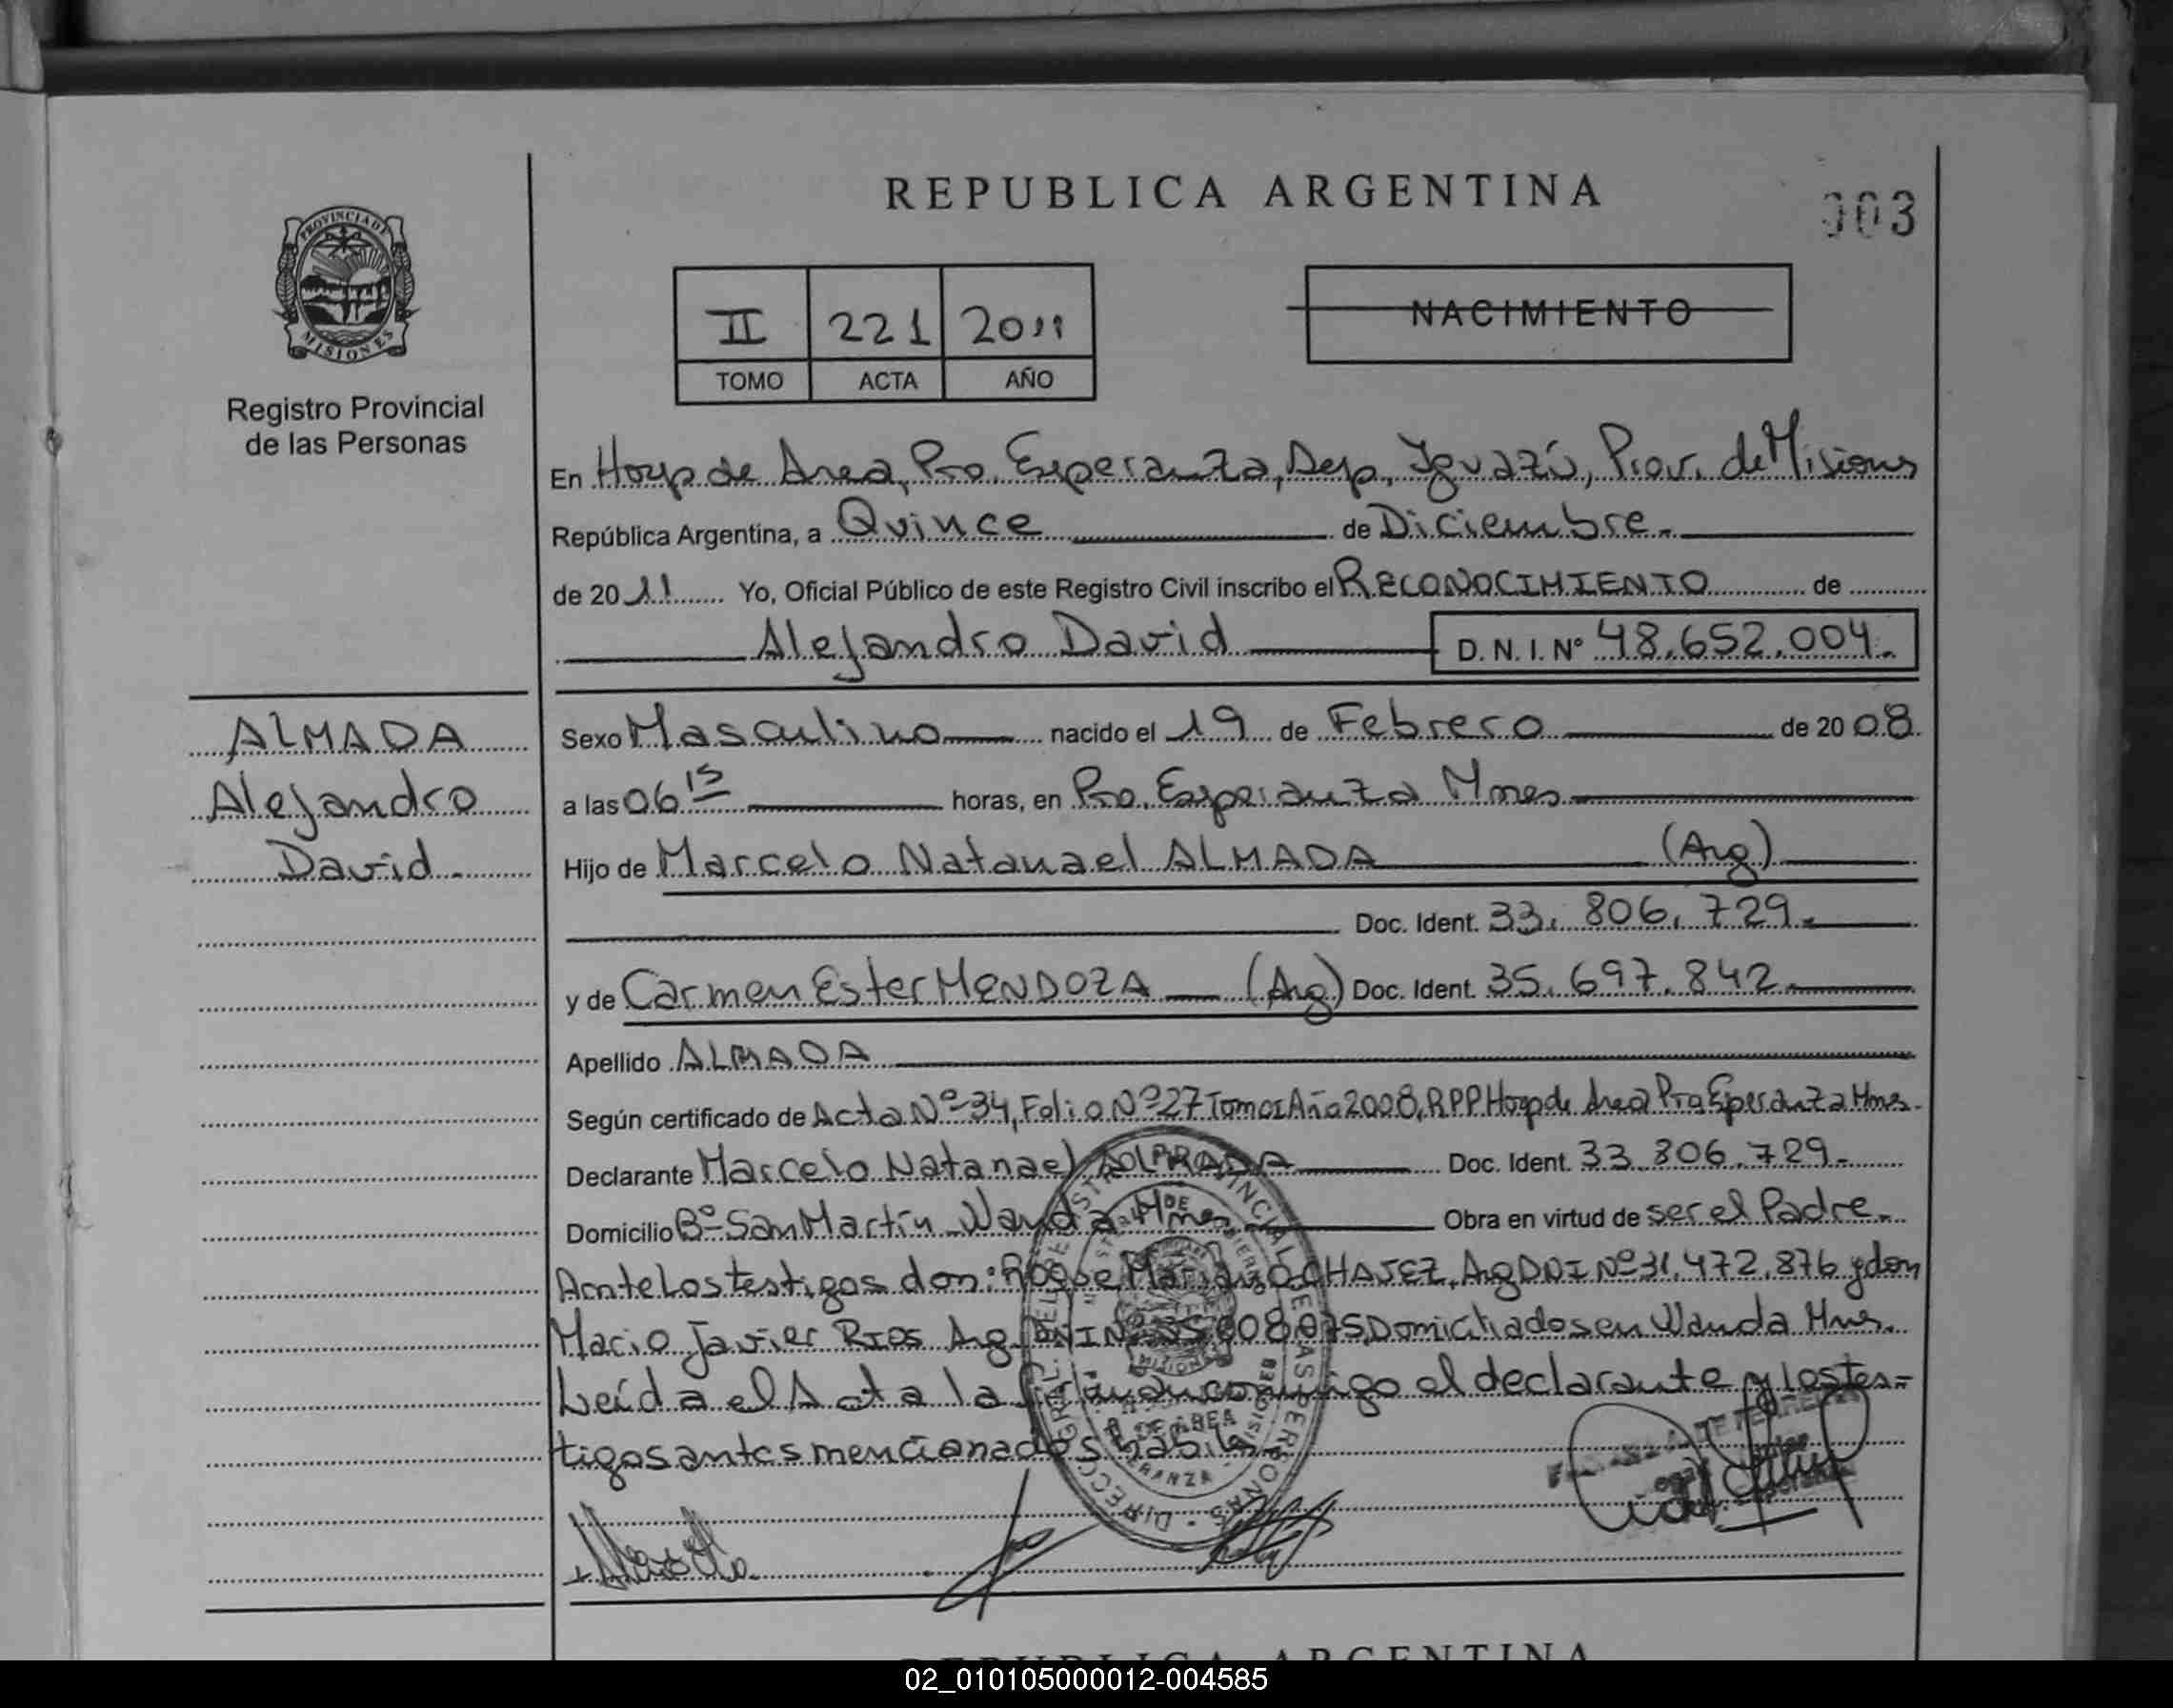 REPUBLICA ARGENTINA
003
PROVINCIA DE
MISIONES
Registro Provincial
de las Personas
II 221 2011
TOMO ACTA AÑO
NACIMIENTO
En Hosp de Area, Pto. Esperanza, Dep. Iguazú, Prov. de Misiones
República Argentina, a Quince de Diciembre.
de 2011 Yo, Oficial Público de este Registro Civil inscribo el RECONOCIMIENTO de
Alejandro David D.N.I. Nº 48.652.004.
ALMADA
Alejandro
David.
Sexo Masculino nacido el 19 de Febrero de 2008
a las 06 15 horas, en Pto. Esperanza Mnes
Hijo de Marcelo Natanael ALMADA (Arg)
Doc. Ident. 33.806.729.
y de Carmen Ester MENDOZA (Arg) Doc. Ident. 35.697.842.
Apellido ALMADA
Según certificado de Acta Nº 34, Folio Nº 27 Tomo I Año 2008, RPP Hosp de Area Pto Esperanza Mnes.
Declarante Marcelo Natanael ALMADA Doc. Ident. 33.806.729.
Domicilio Bº San Martín Wanda Mnes Obra en virtud de ser el Padre.
Ante Los testigos don: Roque Mariano CHAVEZ, Arg DNI Nº 31.472.876 y don
Mario Javier RIOS Arg DNI Nº Domiciliados en Wanda Mnes.
Leída el Acta la firman conmigo el declarante y los tes=
tigos antes mencionados hábiles
REPUBLICA ARGENTINA
02_010105000012-004585